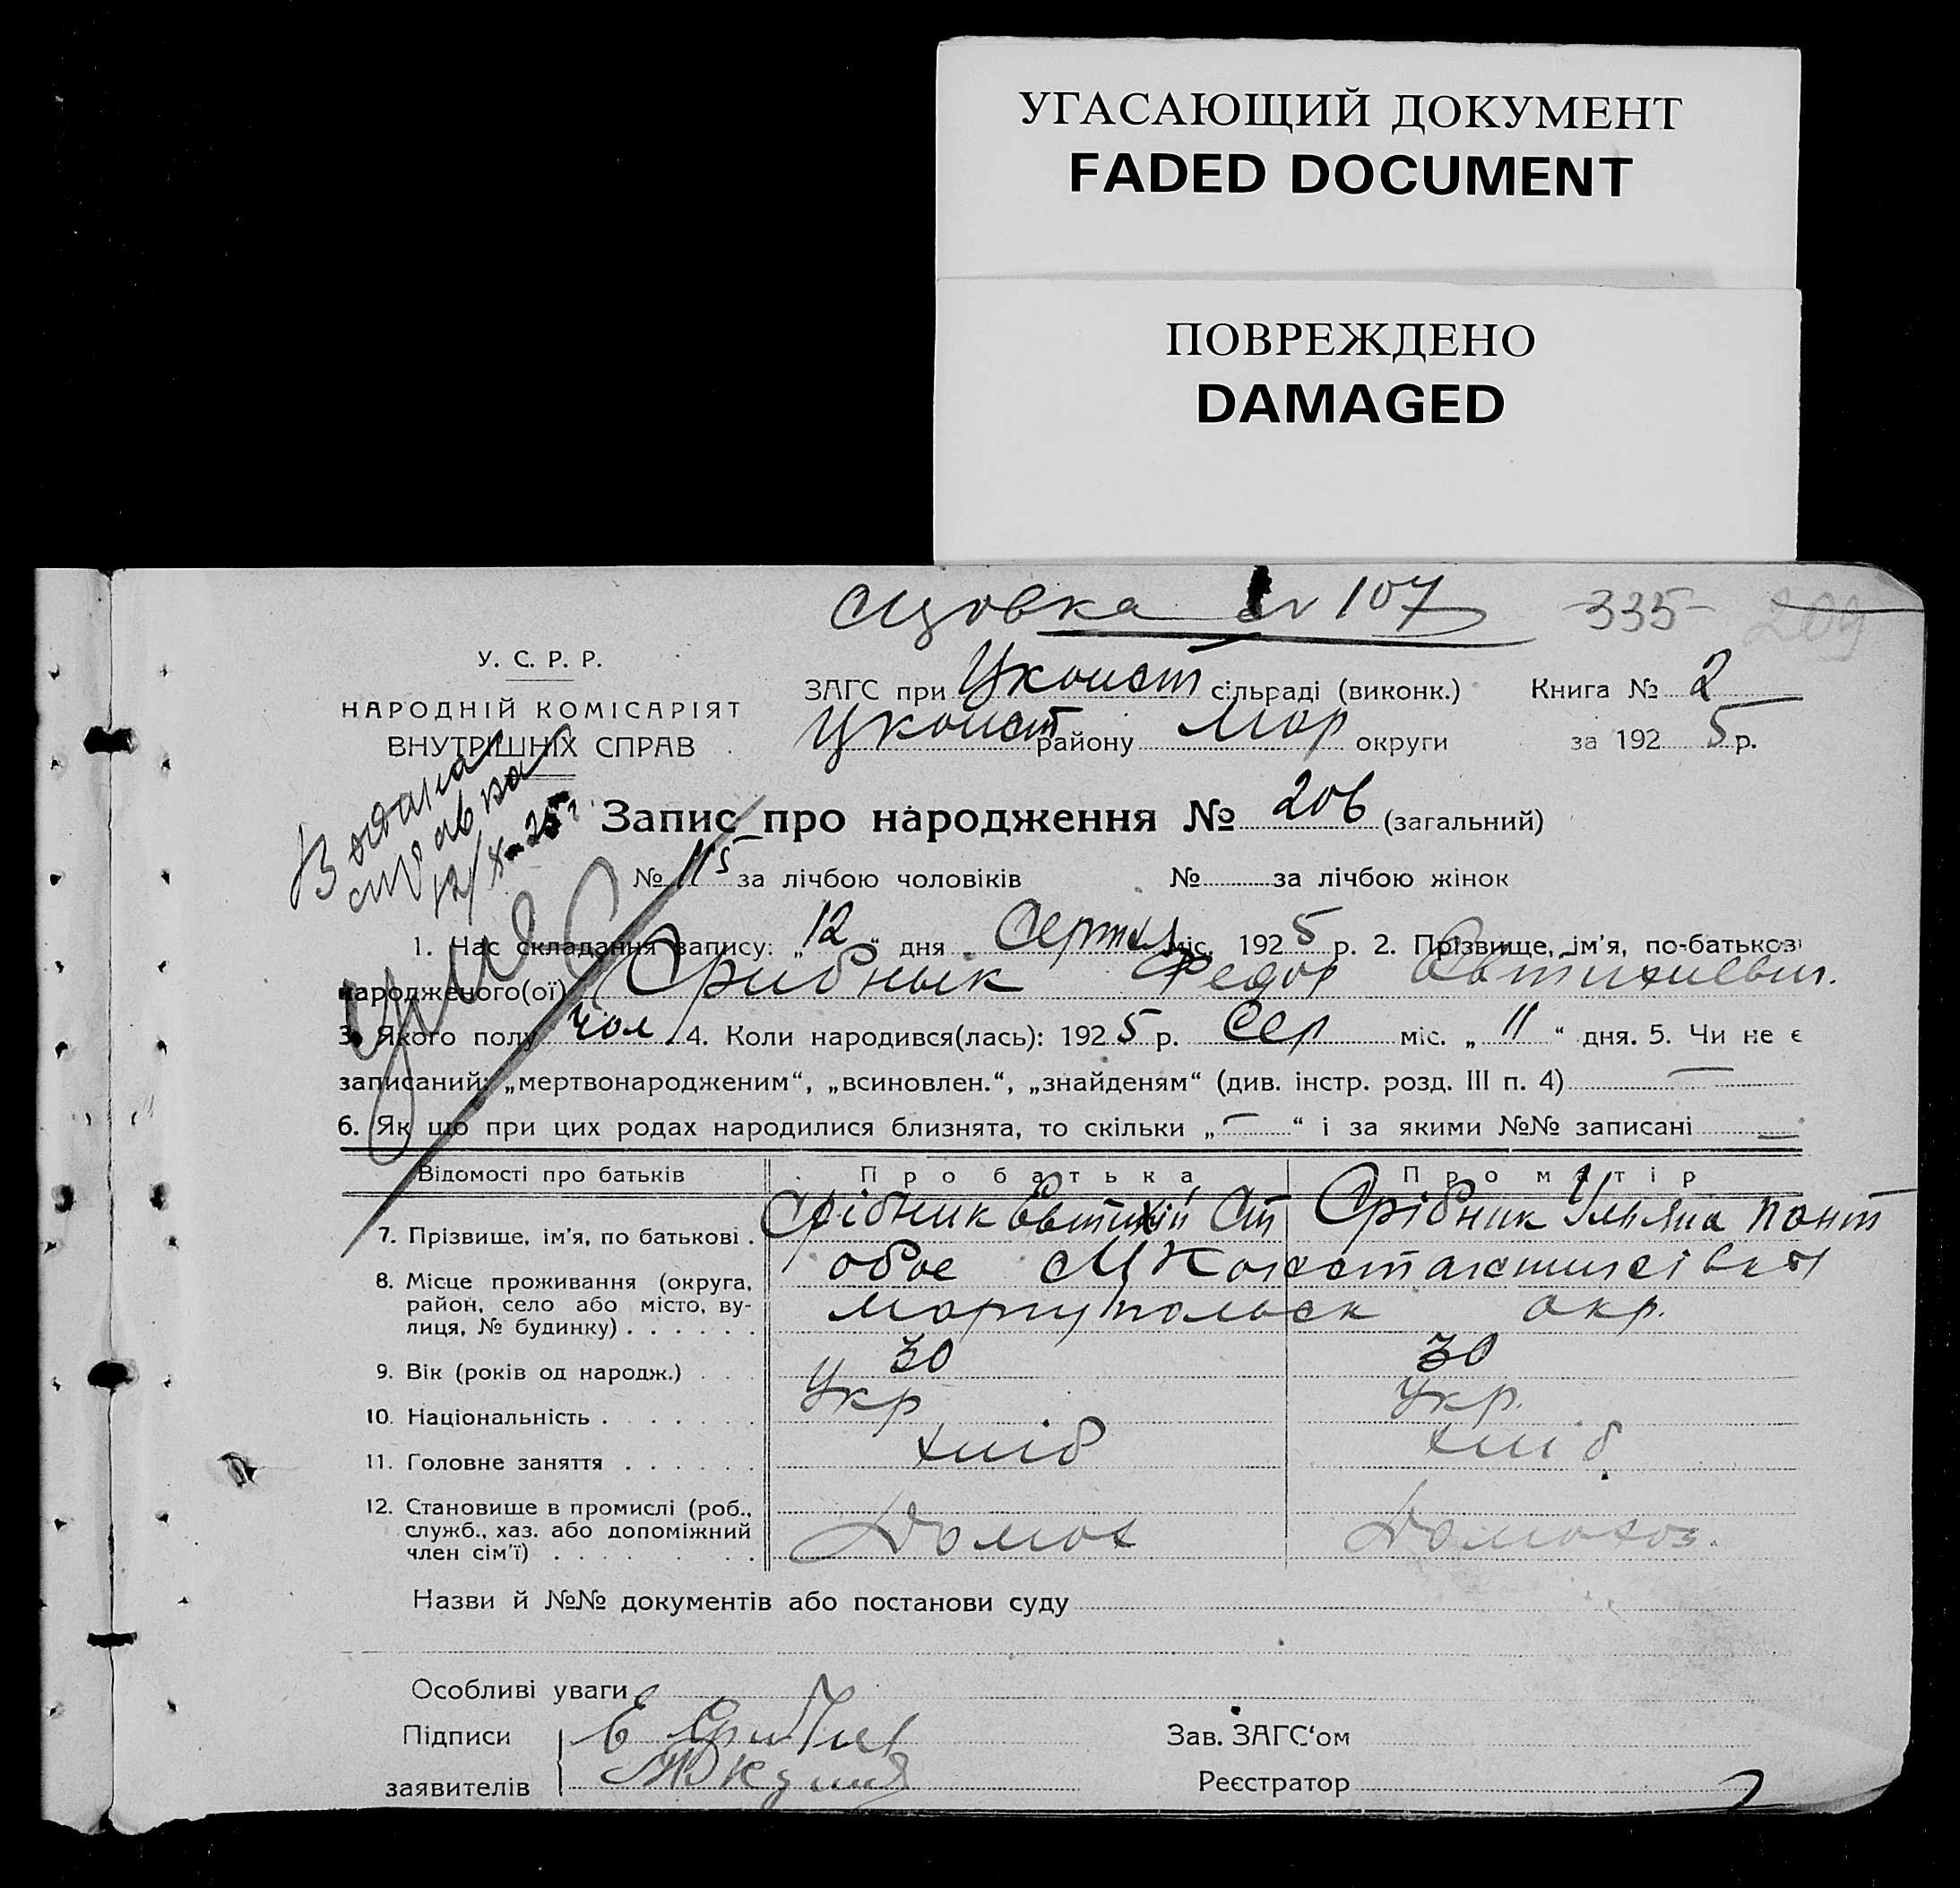 УГАСАЮЩИЙ ДОКУМЕНТ
FADED DOCUMENT
ПОВРЕЖДЕНО
DAMAGED
107 335 209
У. С. Р. Р.
НАРОДНІЙ КОМІСАРІЯТ
ВНУТРІШНІХ СПРАВ
ЗАГС при Уконст сільраді (виконк.) Книга № 2
Уконст району Мар округи за 1925 р.
Видана
справка
Запис про народження № 206 (загальний)
№ 115 за лічбою чоловіків № за лічбою жінок
1. Час складання запису: „12“ дня Серпня міс. 1925 р. 2. Прізвище, ім’я, по-батькові
народженого(ої) Срибнык Федор Овтихиевич.
3. Якого полу чол. 4. Коли народився(лась): 1925 р. Сер міс. „11“ дня. 5. Чи не є
записаний: „мертвонародженим“, „всиновлен.“, „знайденям“ (див. інстр. розд. III п. 4) —
6. Як що при цих родах народилися близнята, то скільки „—“ і за якими №№ записані —
Відомості про батьків Про батька Про матір
7. Прізвище, ім’я, по батькові . Срібник Овтихій Ст Срібник Ульяна Пант
8. Місце проживання (округа,
район, село або місто, ву-
лиця, № будинку) . . . . . .
обое
Мариупольск окр.
9. Вік (років од народж.) . . . 30 30
10. Національність . . . . . . . Укр Укр.
11. Головне заняття . . . . . . хліб хліб
12. Становище в промислі (роб.,
служб., хаз. або допоміжний
член сім’ї) . . . . . . . . Домох Домохоз.
Назви й №№ документів або постанови суду
Особливі уваги
Підписи Зав. ЗАГС‘ом
заявителів Реєстратор